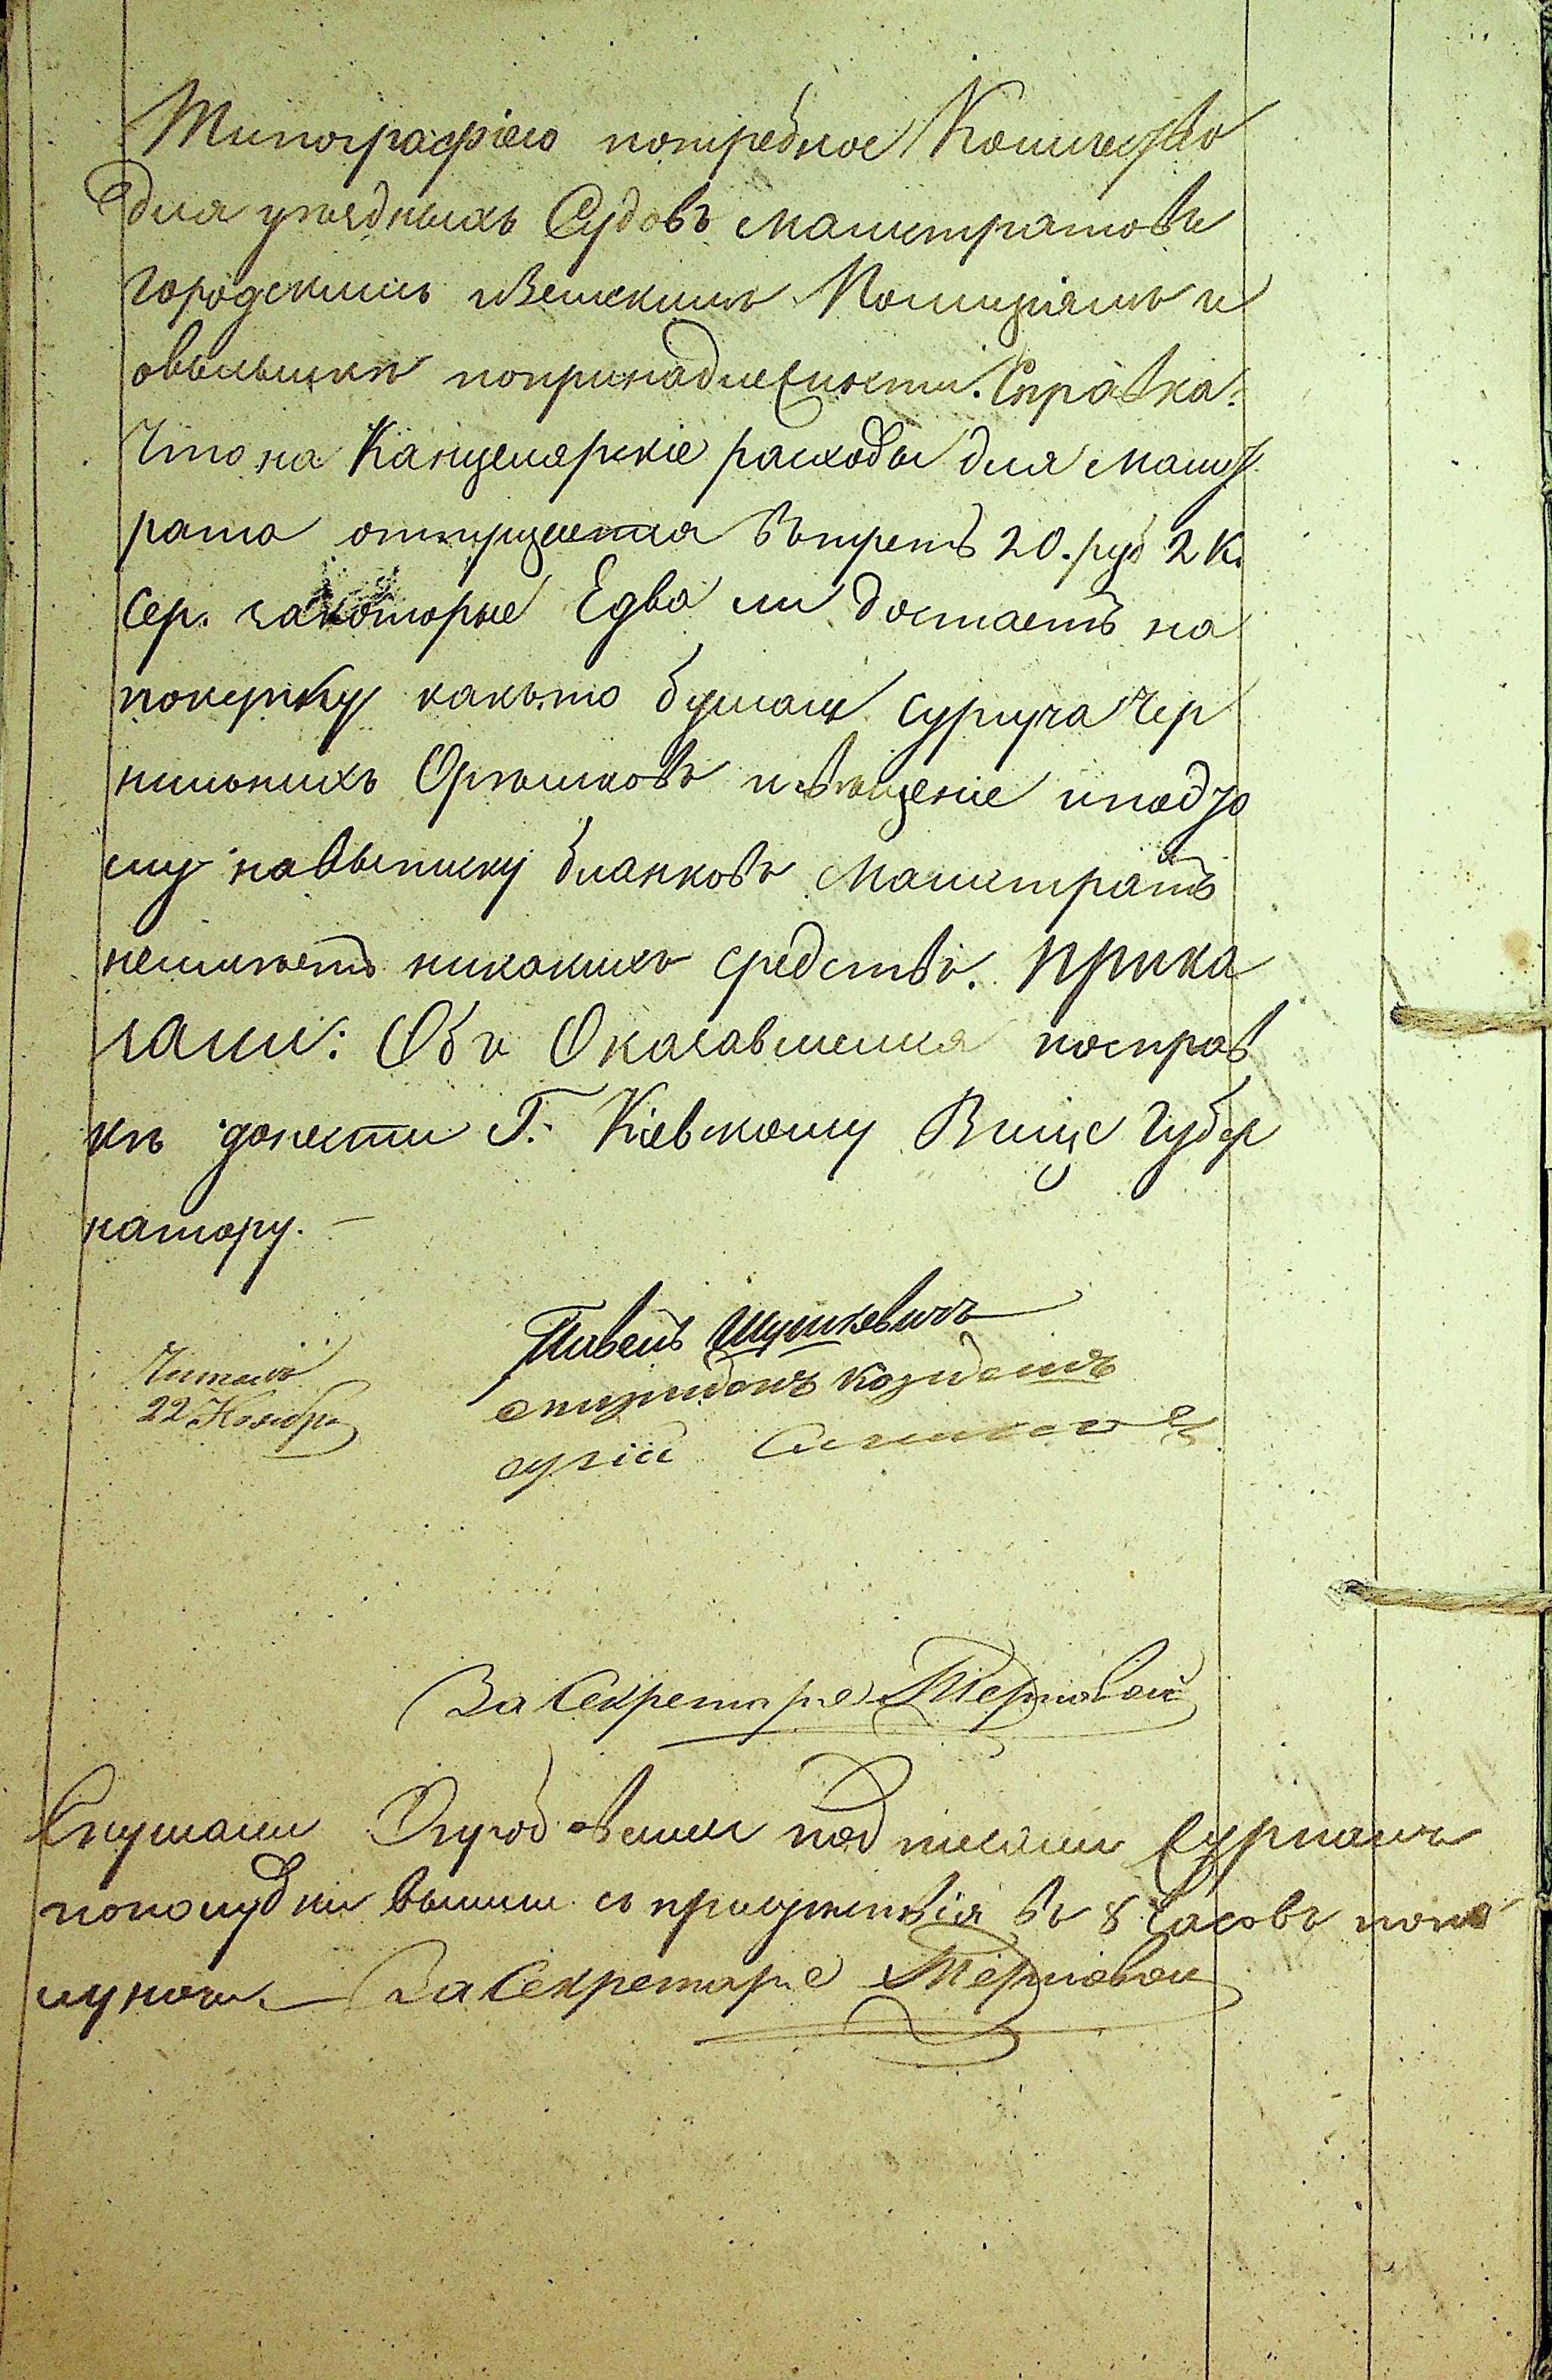 Типографіею потребное Количество
для уездныхъ Судовъ магистратовъ
городскимъ и Земскимъ Полиціямъ и
овысылки попринадлежности. Справка:
Что на Канцелярскіе расходы для магист
рата отпущается втретъ 20. руб 2 к.
Сер. закоторые Едва ли достаетъ на
покупку какъ-то бумаги сургуча Чер
нильныхъ Орѣшковъ и свѣщеніе ипотдо
му навыписку бланковъ Магистратъ
неимѣетъ никакихъ средствъ. Прика
зали: Объ Оказавшемся посправ
кѣ донести Г. Кіевскому Вице Губер
натору. —
Шушкевичъ
Читалъ
22 Ноября
спиридонъ
За Секретаря Терновой
Слушали подписали Журналъ
пополудни вышли съ присутствія въ 8 Часовъ попо
луночи. — За Секретаря Терновой